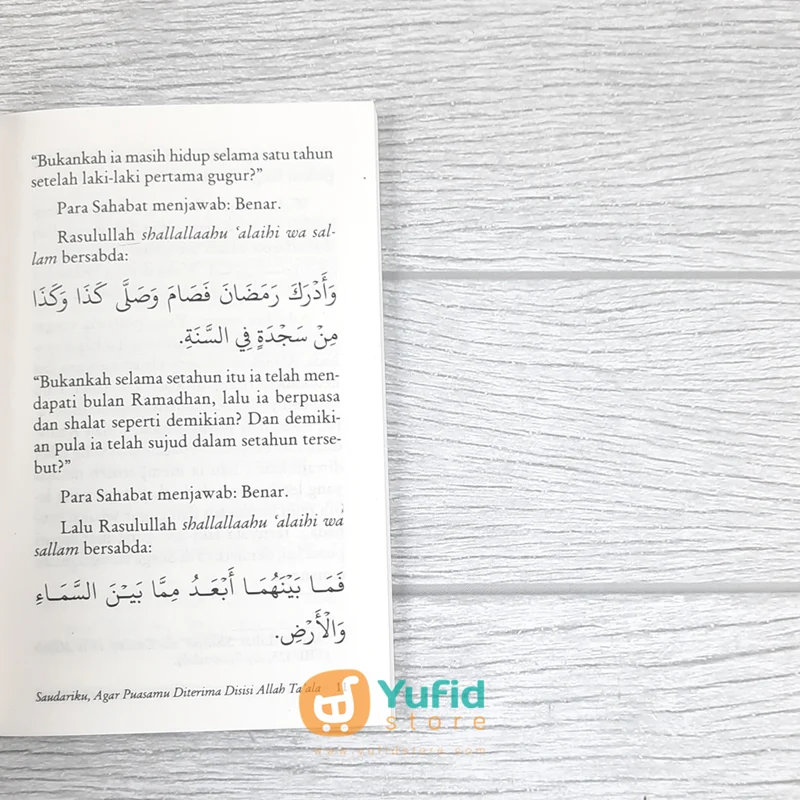 “Bukankah ia masih hidup selama satu tahun
setelah laki-laki pertama gugur?”
Para Sahabat menjawab: Benar.
Rasulullah shallallaahu ‘alaihi wa sal-
lam bersabda:
وَأَدْرَكَ رَمَضَانَ فَصَامَ وَصَلَّى كَذَا وَكَذَا
مِنْ سَجْدَةٍ فِي السَّنَةِ.
“Bukankah selama setahun itu ia telah men-
dapati bulan Ramadhan, lalu ia berpuasa
dan shalat seperti demikian? Dan demiki-
an pula ia telah sujud dalam setahun terse-
but?”
Para Sahabat menjawab: Benar.
Lalu Rasulullah shallallaahu ‘alaihi wa
sallam bersabda:
فَمَا بَيْنَهُمَا أَبْعَدُ مِمَّا بَيْنَ السَّمَاءِ
وَالْأَرْضِ.
Saudariku, Agar Puasamu Diterima Disisi Allah Ta’ala
Yufid
store